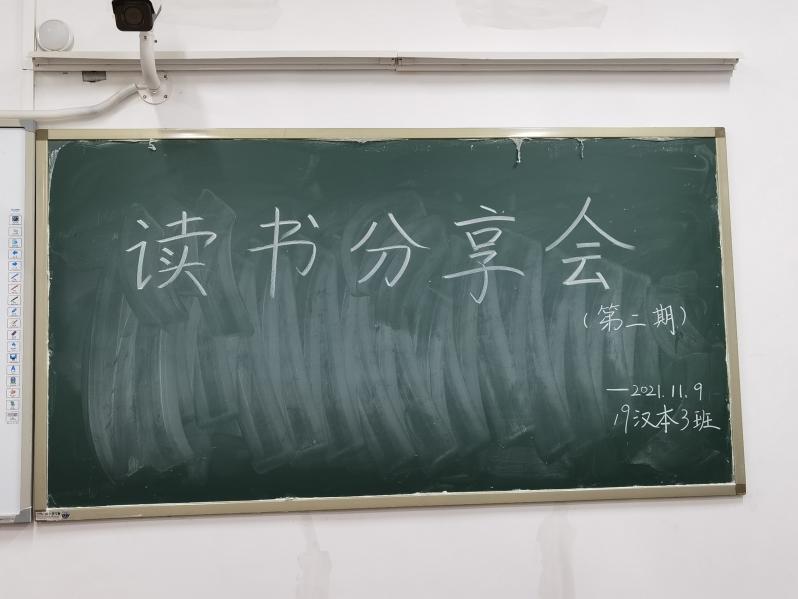 读书分享会
（第二期）
—2021.11.9
19汉本3班